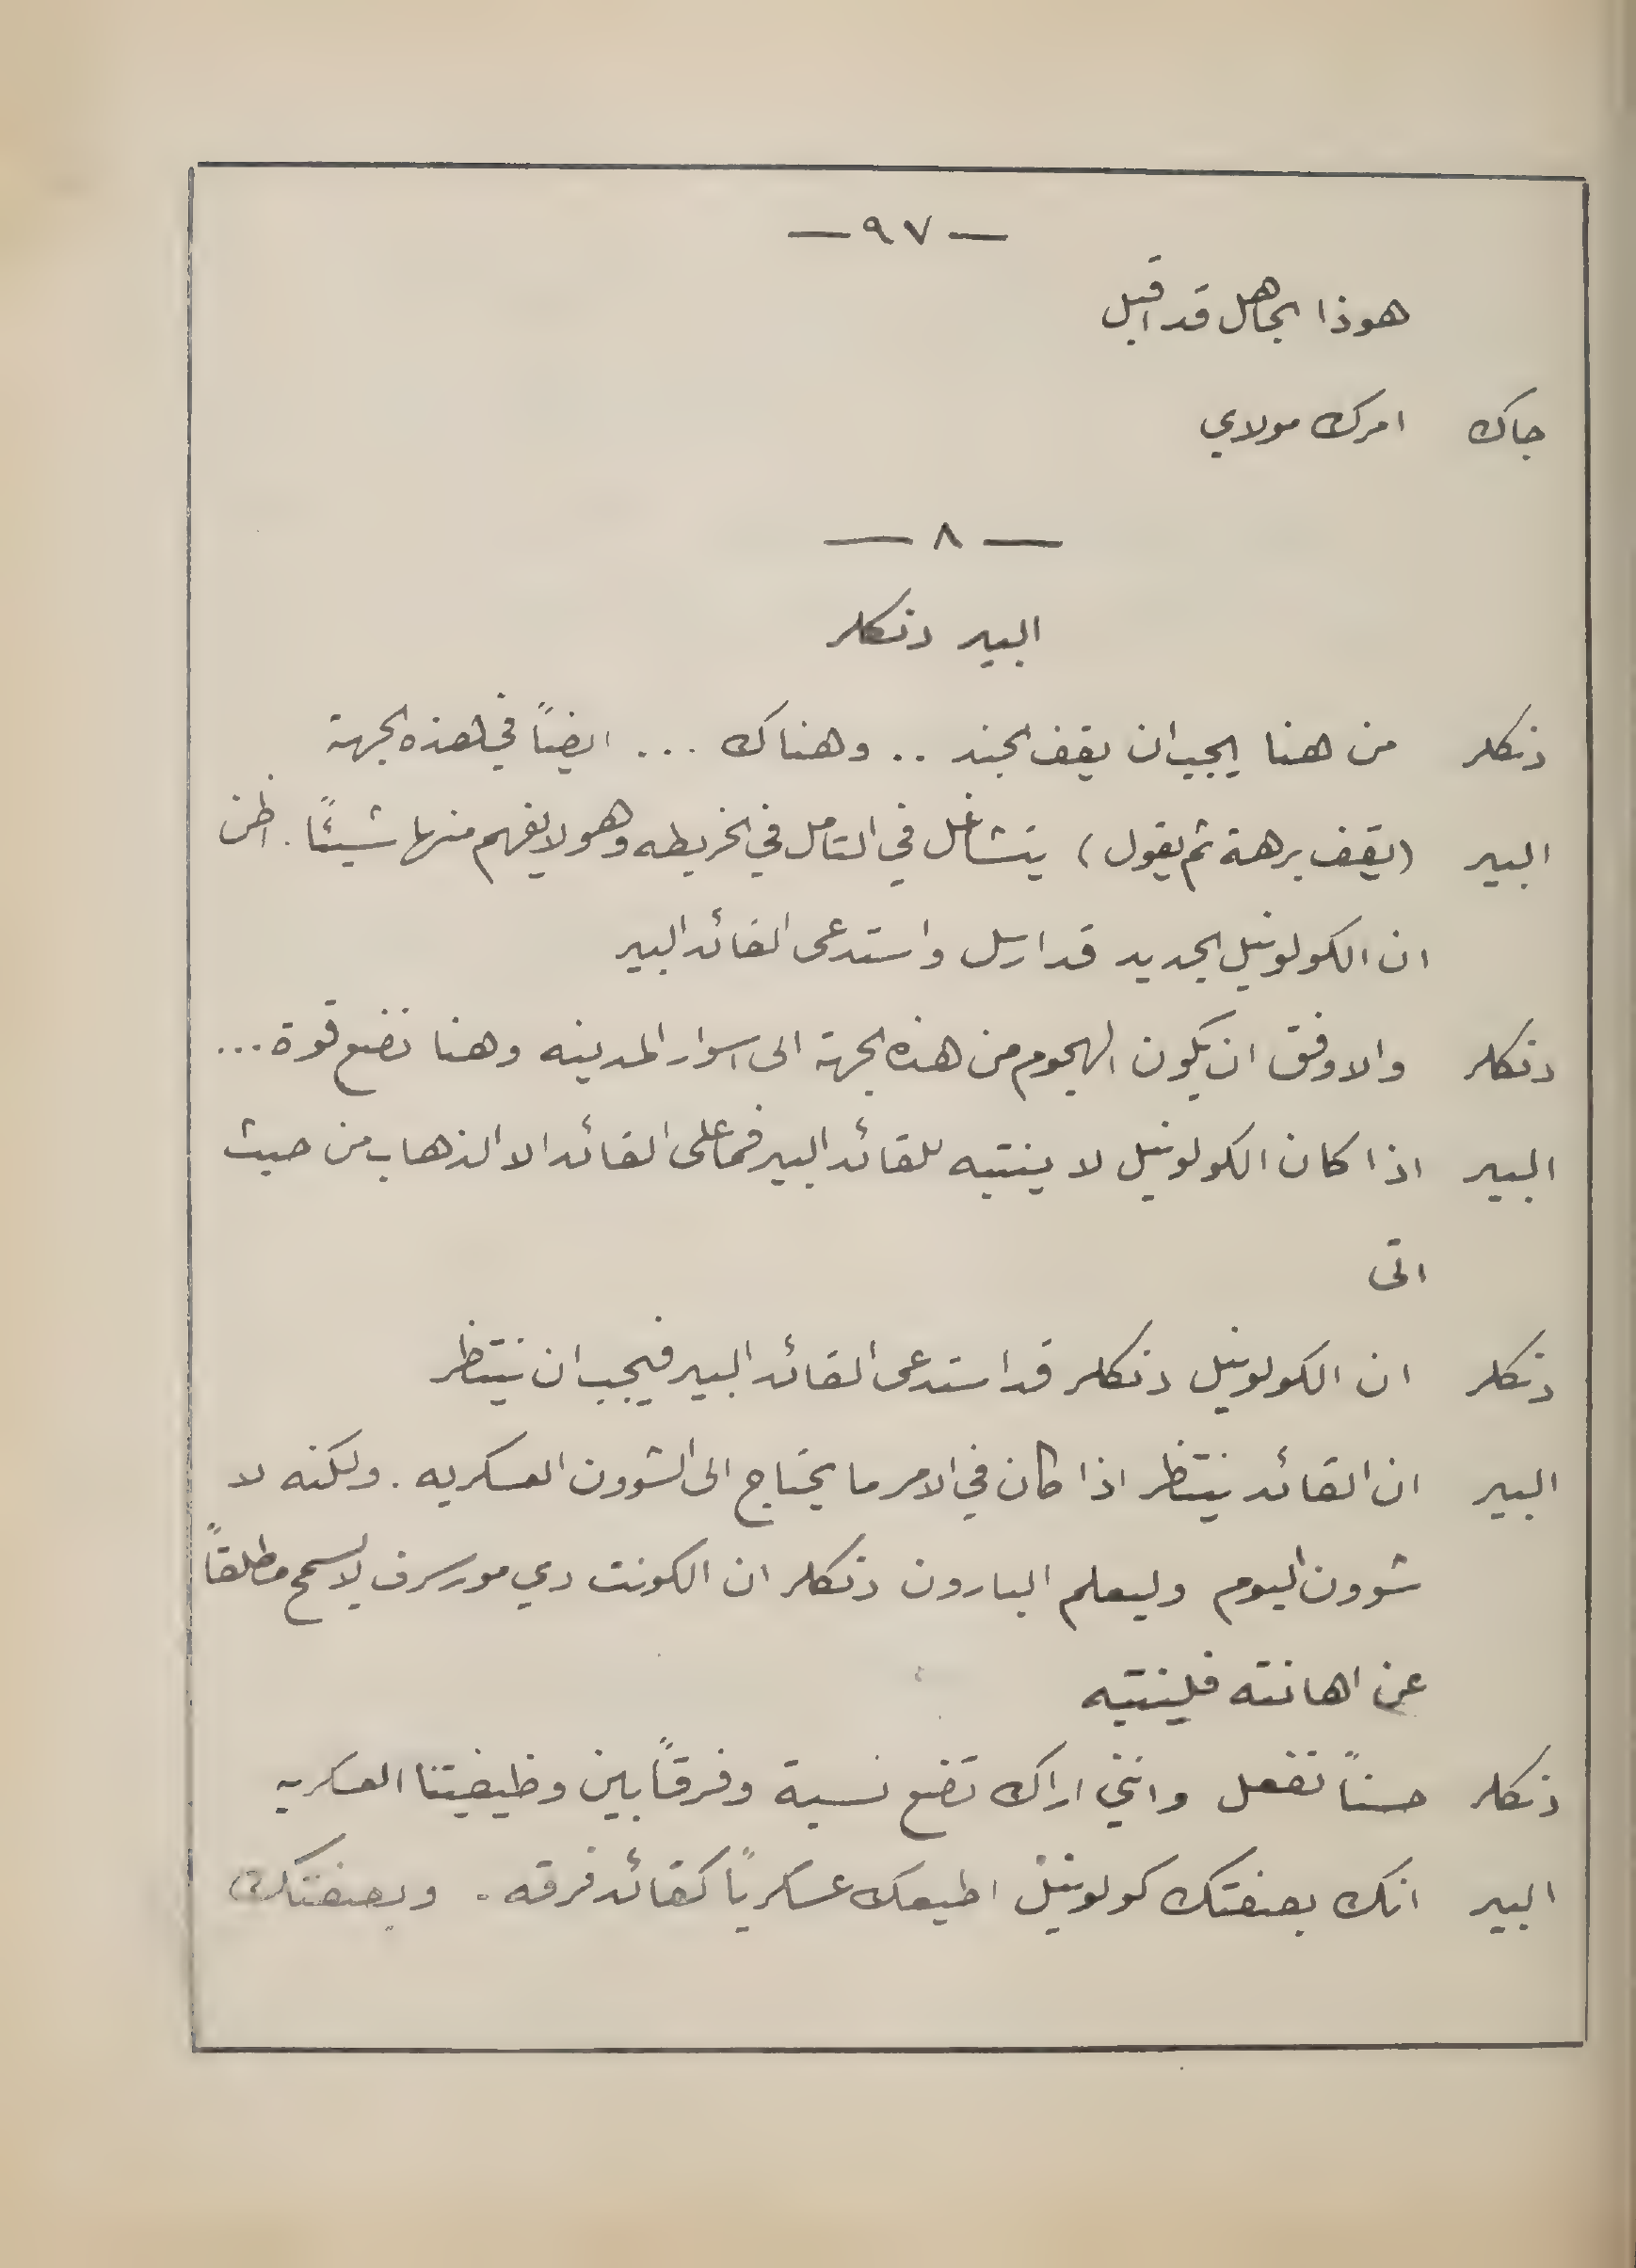 — ٩٧ —
هوذا الجاهل قد اقبل
جاك امرك مولاي
— ٨ —
البير دنكلر
دنكلر من هنا يجب ان يقف الجند .. وهناك ... ايضاً في هذه الجهة
البير (يقف برهة ثم يقول) يتشاغل في التامل في الخريطه وهو لا يفهم منها شيئاً . اظن
ان الكولونيل الجديد قد ارسل واستدعى القائد البير
دنكلر والاوفق ان يكون الهجوم من هذه الجهة الى اسوار المدينه وهنا نضع قوة ...
البير اذا كان الكولونيل لا ينتبه للقائد البير فما على القائد الا الذهاب من حيث
اتى
دنكلر ان الكولونيل دنكلر قد استدعى القائد البير فيجب ان ينتظر
البير ان القائد ينتظر اذا كان في الامر ما يحتاج الى الشوون العسكريه . ولكنه لا
شوون اليوم وليعلم البارون دنكلر ان الكونت دي مورسرف لا يسمح مطلقاً
عن اهانته فلينتبه
دنكلر حسناً تفعل وانني اراك تضع نسبة وفرقاً بين وظيفيتنا العسكريه
البير انك بصفتك كولونيل اطيعك عسكرياً كقائد فرقه . وبصفتك